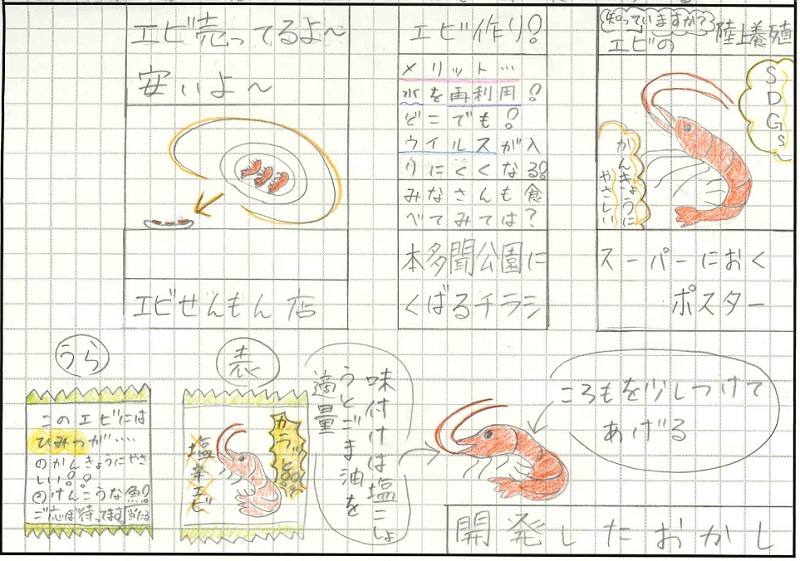 エビ売ってるよ～
安いよ～
エビせんもん店
エビ作り?
メリット…
水を再利用?
どこでも?
ウイルスが入
りにくくなる?
みなさんも食
べてみては?
本多聞公園に
くばるチラシ
知っていますか?
エビの陸上養殖
SDGs
かんきょうに
やさしい
スーパーにおく
ポスター
うら
このエビには
ひみつが….
のかんきょうにやさ
しい?
②けんこうな魚?
表
カラッと
塩辛エビ
味付けは塩こしょ
うとごま油を
適量
ころもを少しつけて
あげる
開発したおかし